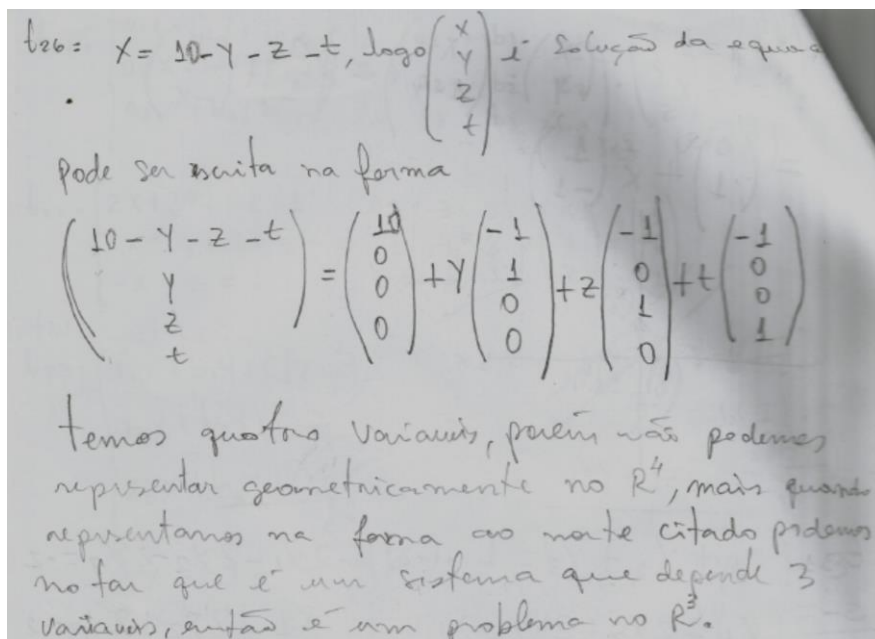 t26: X = 10-Y-Z-t, logo (X Y Z t) é solução da equaç
Pode ser escrita na forma
(10-Y-Z-t Y Z t) = (10 0 0 0) + Y (-1 1 0 0) + Z (-1 0 1 0) + t (-1 0 0 1)
temos quatro variaveis, porém não podemos
representar geometricamente no R⁴, mais quando
representamos na forma ao norte citado podemos
no tar que é um sistema que depende 3
variaveis, então é um problema no R³.